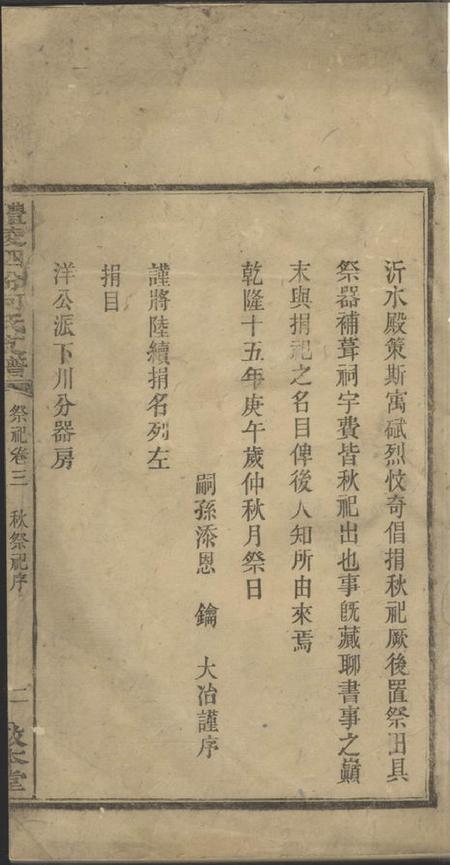 沂水殿策斯寓碔烈忟奇倡捐秋祀厥後置祭田具
祭器補葺祠宇費皆秋祀出也事旣藏聊書事之巔
末與捐祀之名目俾後人知所由來焉
乾隆十五年庚午歲仲秋月祭日
嗣孫添恩 鑰 大冶謹序
謹將陸續捐名列左
捐目
洋公派下川分器房
醴陵四份何氏支譜 祭祀卷三 秋祭祀序 二 敬本堂